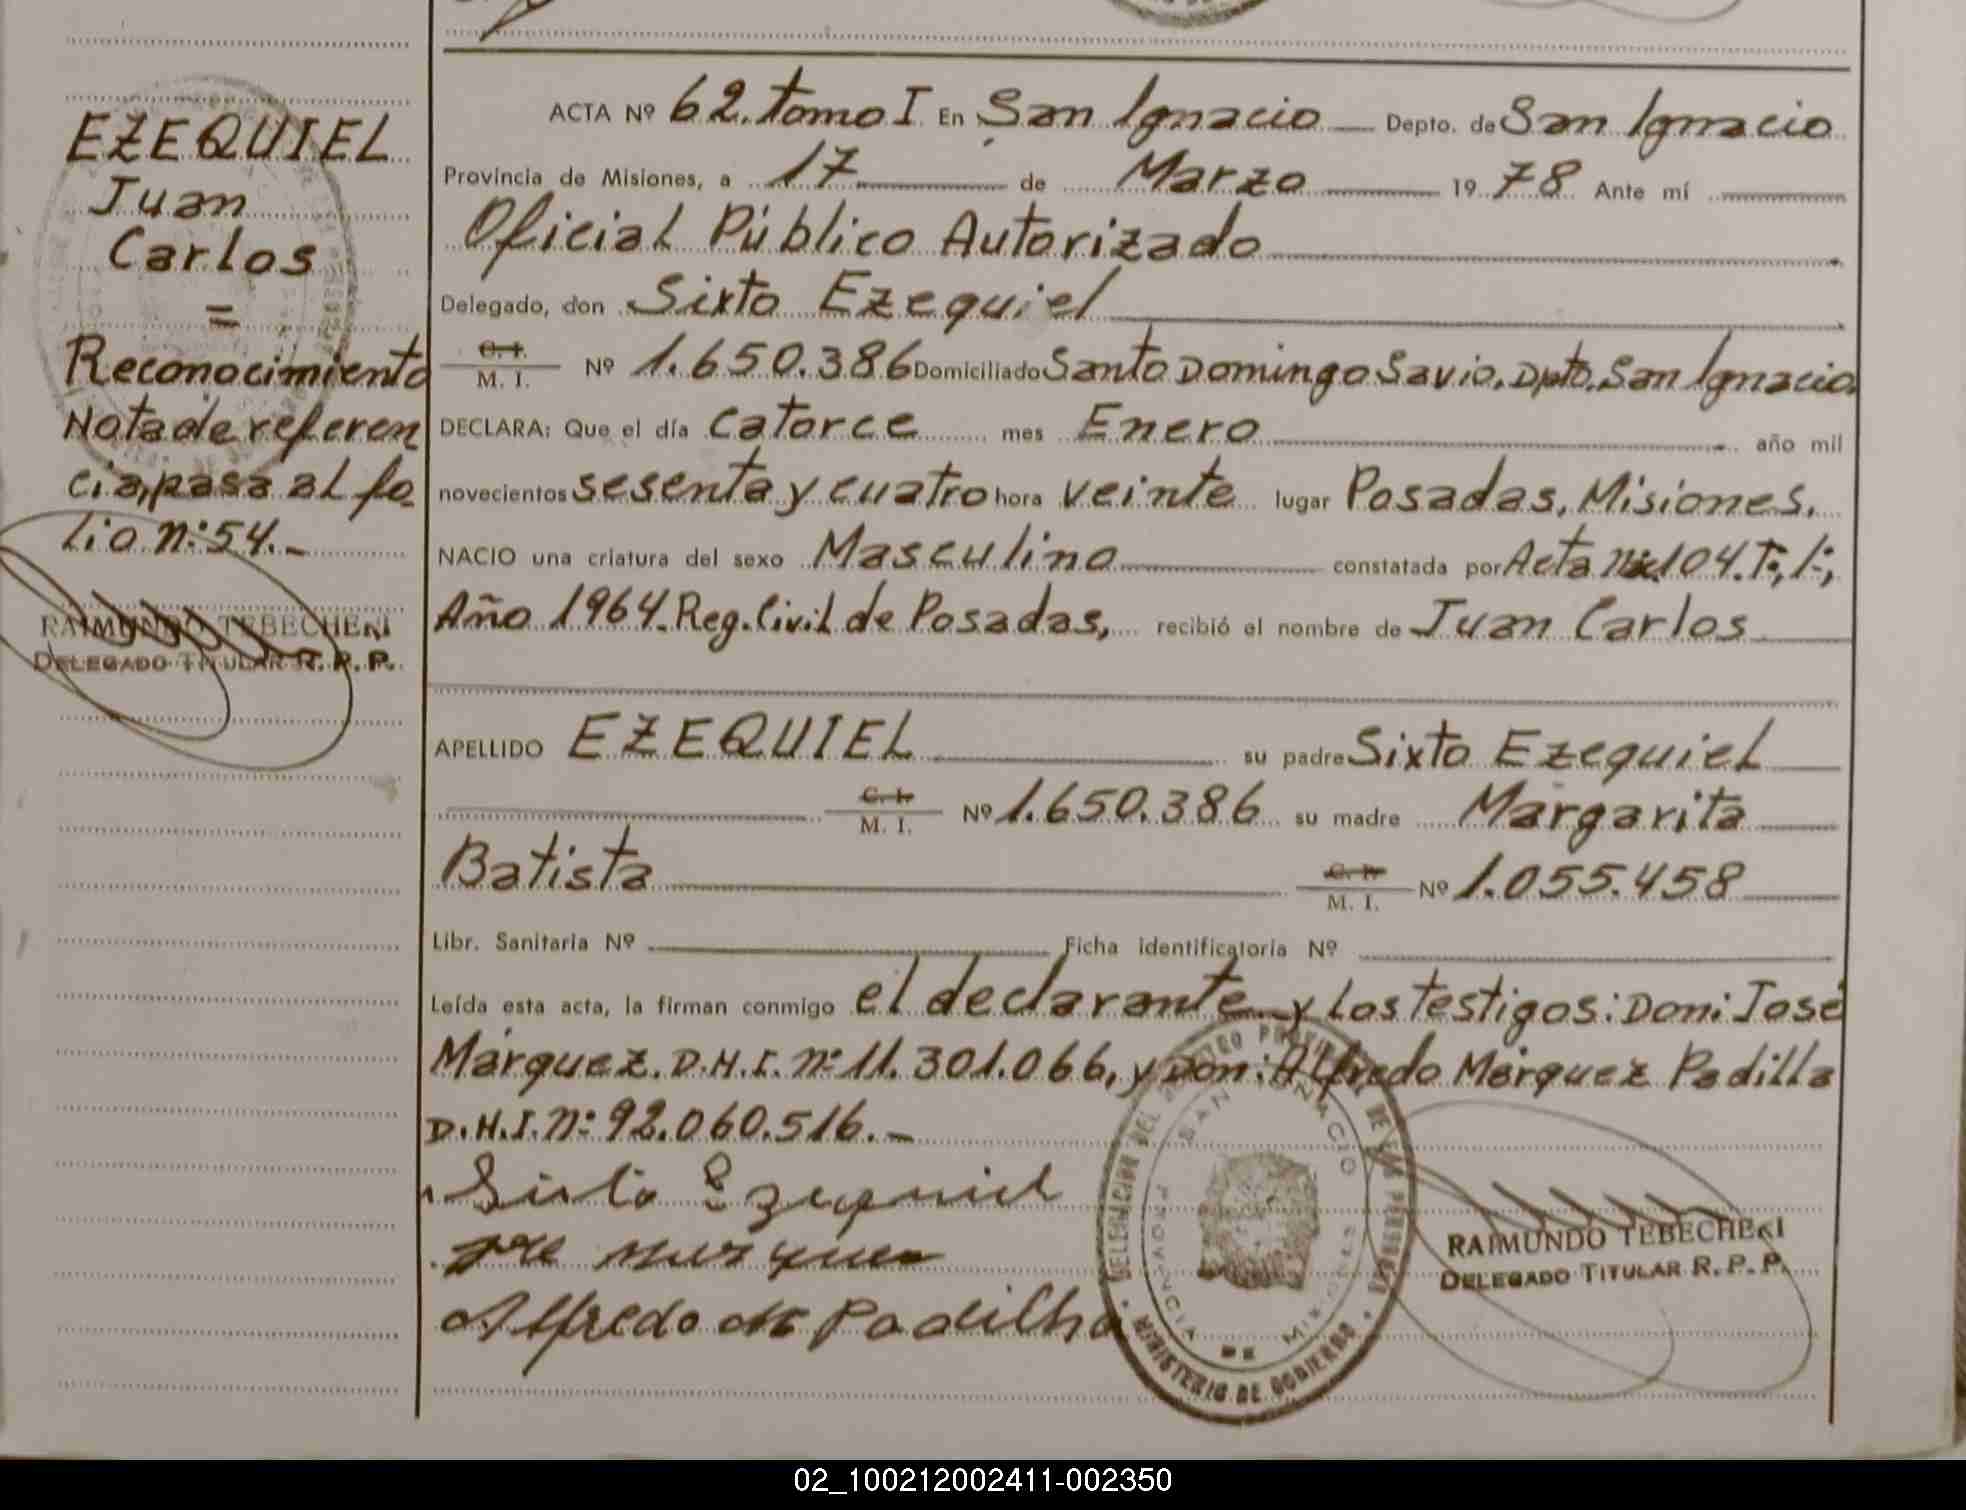 EZEQUIEL
Juan
Carlos
=
Reconocimiento
Nota de referen
cia, pasa al fo-
lio n:54.-
RAIMUNDO TEBECHERI
DELEGADO TITULAR R. P. P.
ACTA Nº 62. Tomo I En San Ignacio Depto. de San Ignacio
Provincia de Misiones, a 17 de Marzo 1978 Ante mí
Oficial Público Autorizado
Delegado, don Sixto Ezequiel
C. I.
M. I. Nº 1.650.386 Domiciliado Santo Domingo Savio, Dpto. San Ignacio
DECLARA: Que el día catorce mes Enero año mil
novecientos sesenta y cuatro hora veinte lugar Posadas, Misiones,
NACIO una criatura del sexo Masculino constatada por Acta n: 104. T:, 1:,
Año 1964. Reg. Civil de Posadas, recibió el nombre de Juan Carlos
APELLIDO EZEQUIEL su padre Sixto Ezequiel
C. I.
M. I. Nº 1.650.386 su madre Margarita
Batista C. I.
M. I. Nº 1.055.458
Libr. Sanitaria Nº Ficha identificatoria Nº
Leída esta acta, la firman conmigo el declarante y los testigos: Don: José
Márquez. D.N.I. n: 11.301.066, y Don: Alfredo Márquez Padilla
D.N.I. n: 92.060.516.-
Sixto Ezequiel
Alfredo M Padilha
DELEGACION DEL REGISTRO PROVINCIAL DE LAS PERSONAS
SAN IGNACIO
PROVINCIA DE MISIONES
MINISTERIO DE GOBIERNO
RAIMUNDO TEBECHERI
DELEGADO TITULAR R. P. P.
02_100212002411-002350